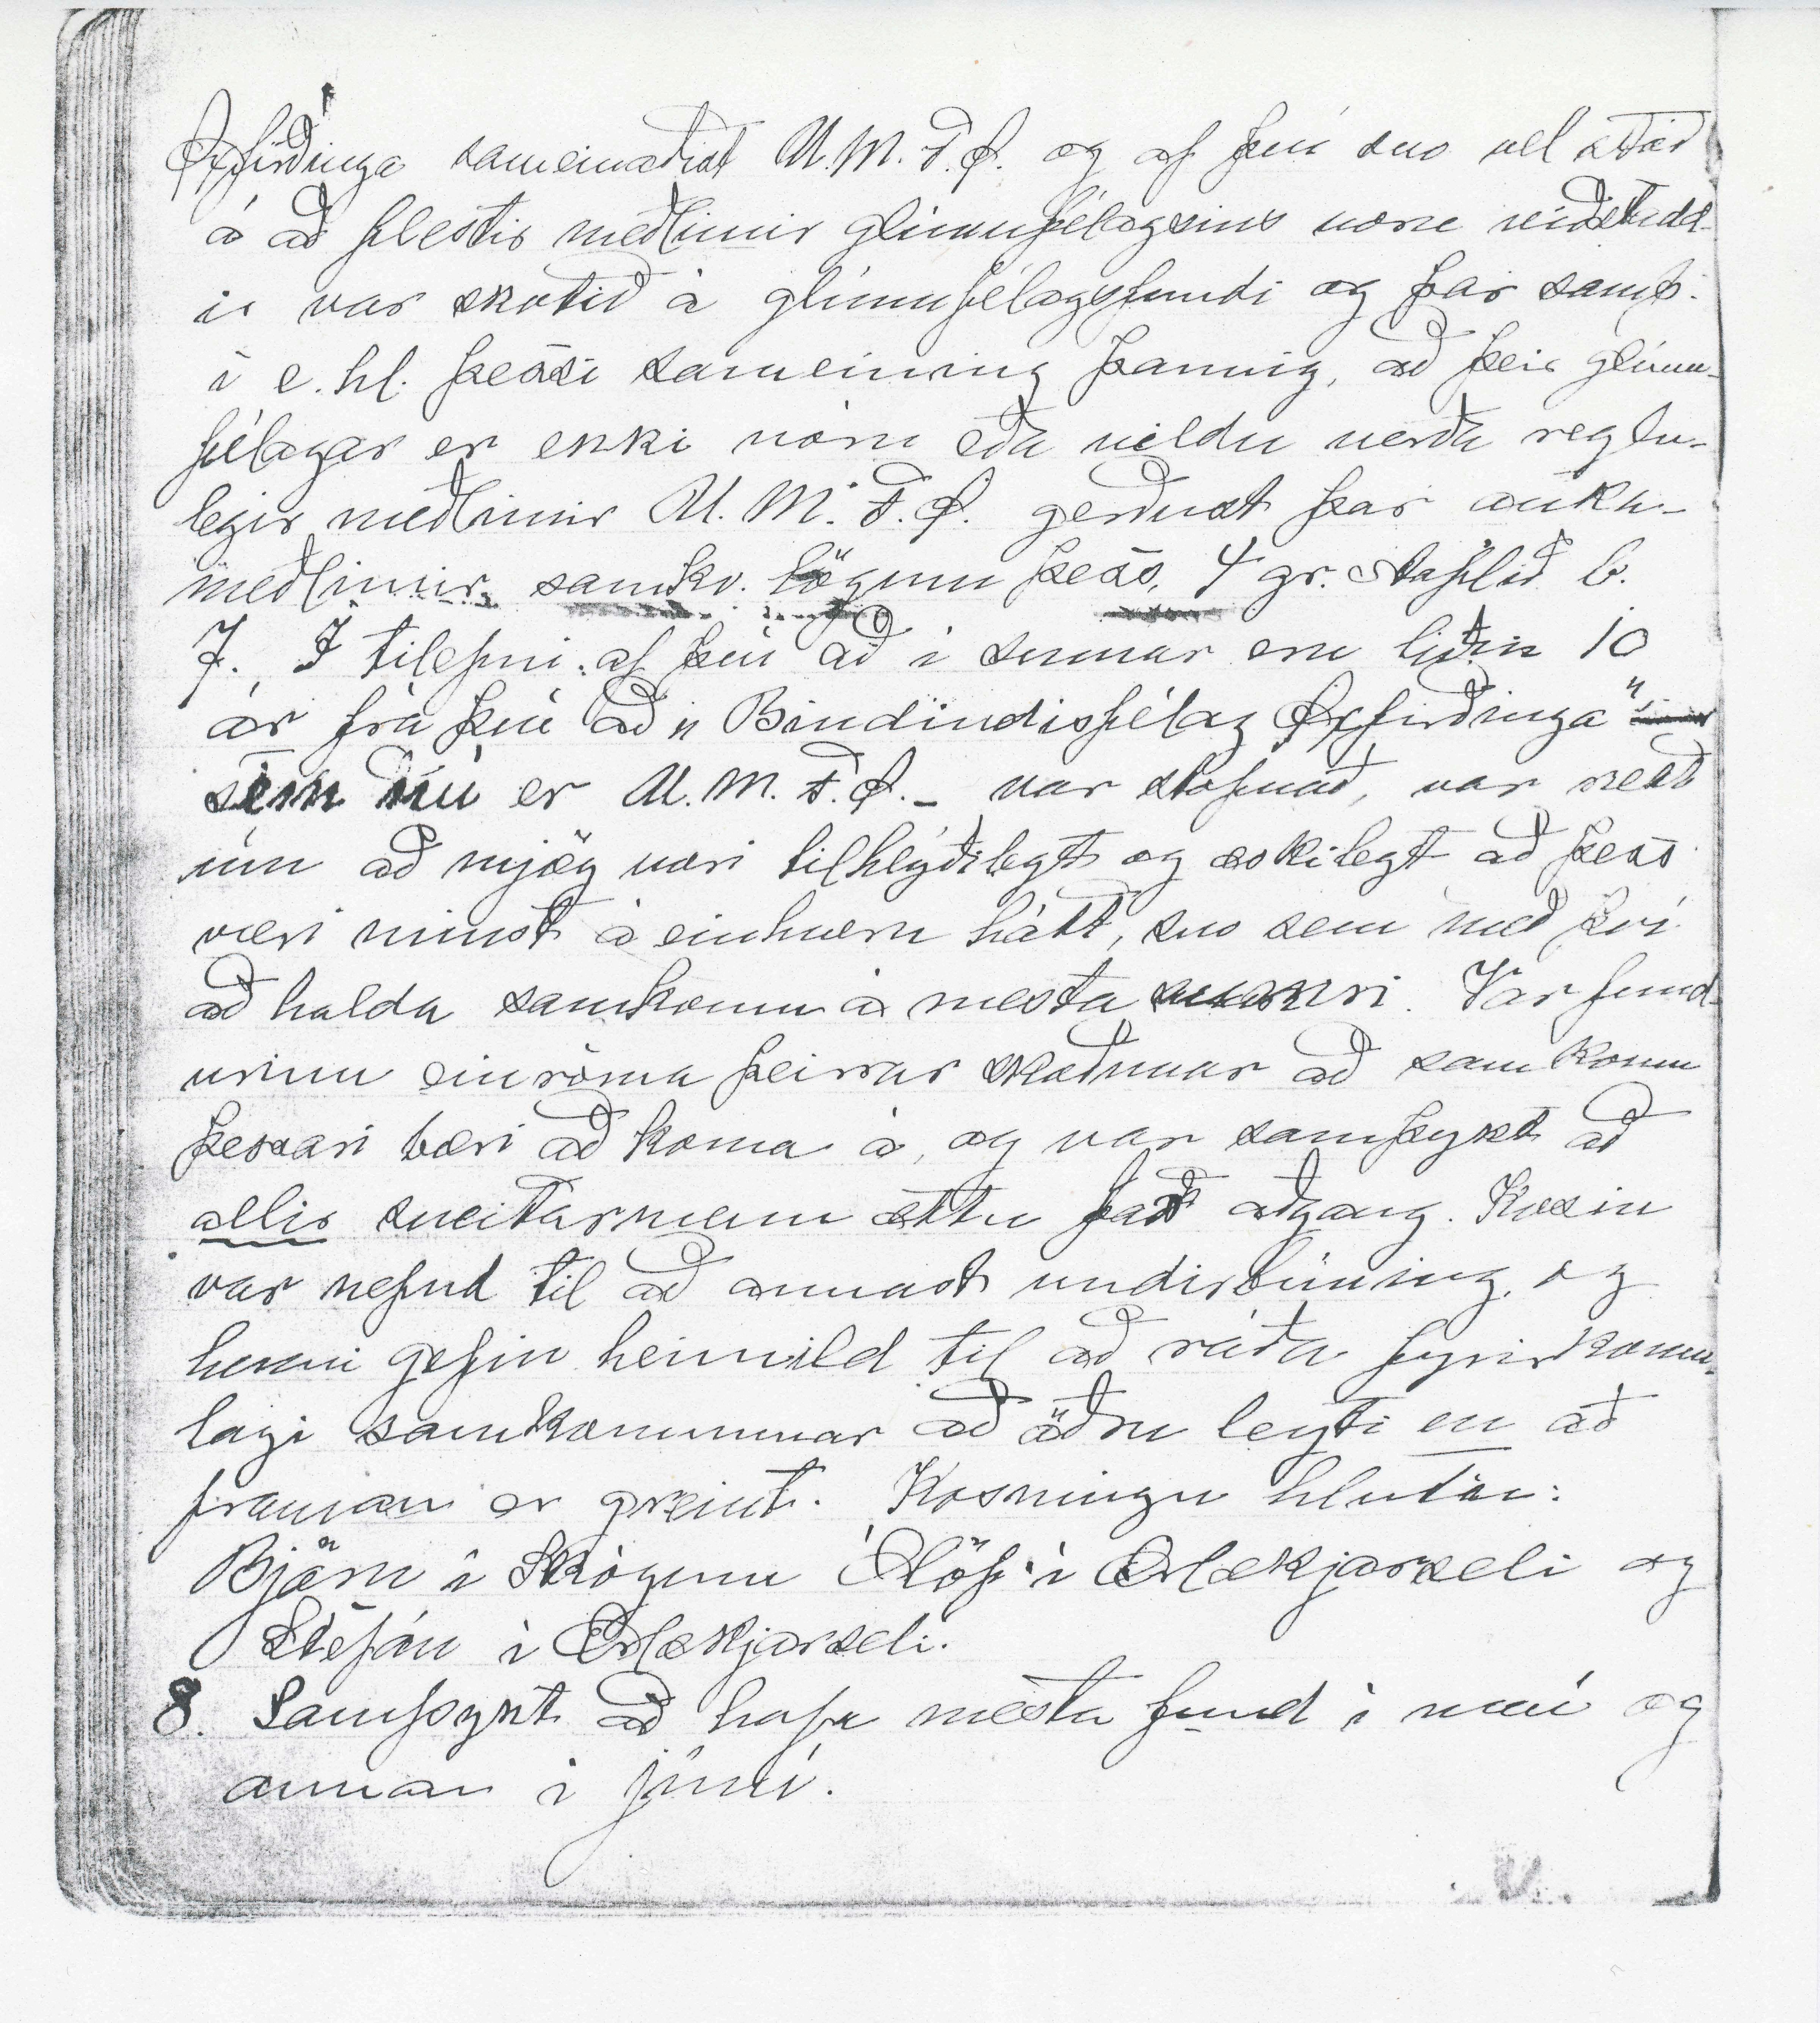 Öxfirðinga sameinaðist U.M.F.Ö. og af því svo vel stóð
á að flestir meðlimir glímufélagsins voru viðstadd-
ir var skotið á glímufélagsfundi og þar samþ.
í e. hl. þessi sameining þannig, að þeir glímu-
félagar er ekki væru eða vildu verða reglu-
legir meðlimir U.M.F.Ö. gerðust þar auka-
meðlimir samkv. lögum þess, 4 gr. staflið b.
7. Í tilefni af því að í sumar eru liðin 10
ár frá því að „Bindindisfélag Öxfirðinga"
sem nú er U.M.F.Ö. - var stofnað, var rætt
um að mjög væri tilhlýðilegt og æskilegt að þess
væri minst á einhvern hátt, svo sem með því
að halda samkomu á næsta sumri. Var fund-
urinn einróma þeirrar skoðunar að samkomu
þessari bæri að koma á, og var samþykt að
allir sveitarmenn ættu þar aðgang. Kosin
var nefnd til að annast undirbúning, og
henni gefin heimild til að ráða fyrirkomu-
lagi samkomunnar að öðru leyti en að
framan er greint. Kosningu hlutu:
Björn í Skógum Ólöf í Ærlækjarseli og
Stefán í Ærlækjarseli.
8. Samþykt að hafa næsta fund í maí og
annan í júní.